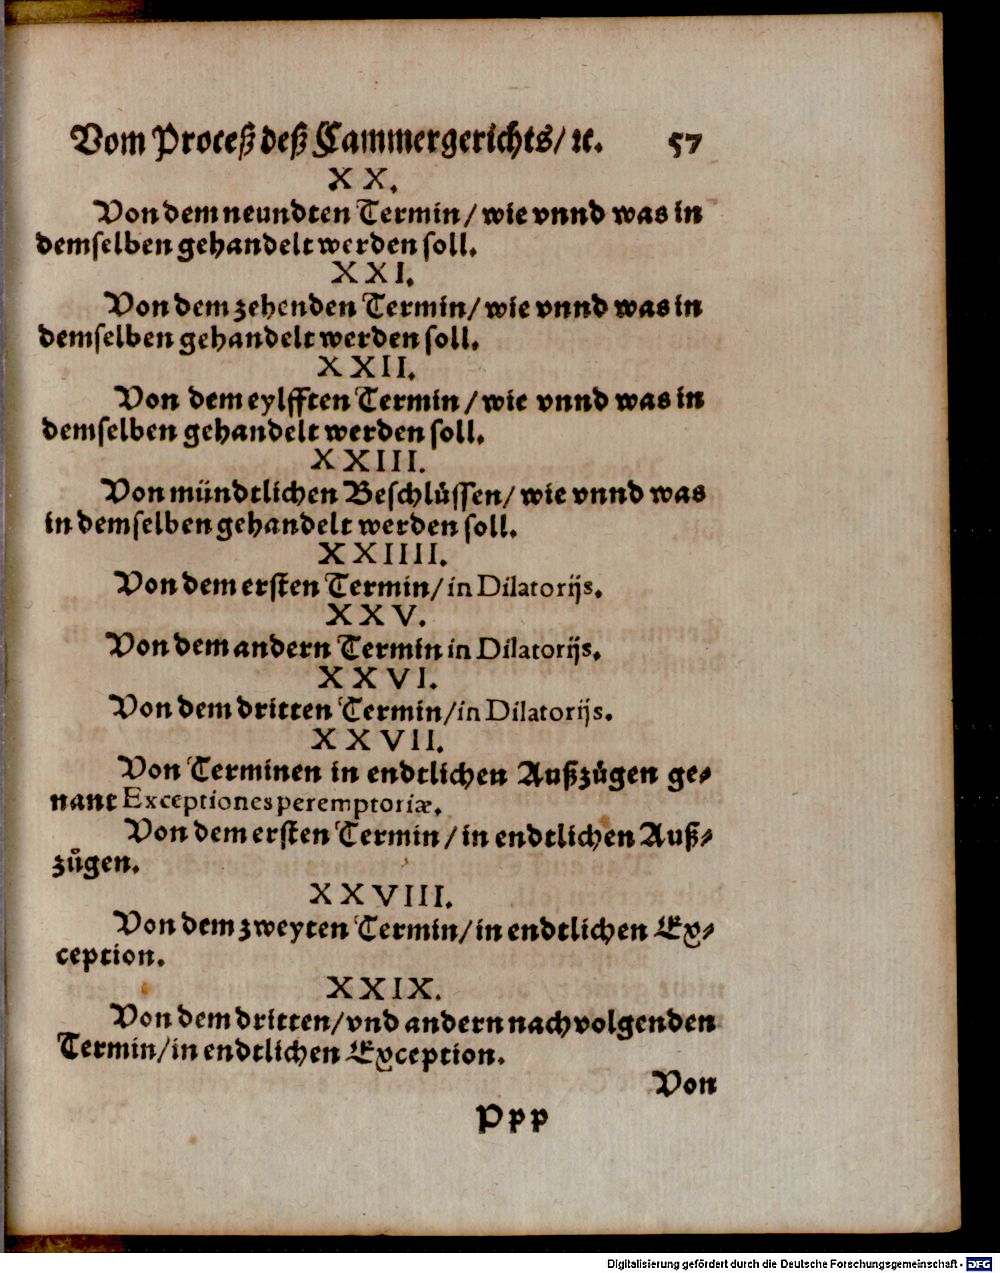 Vom Proceß deß Cammergerichts/ ꝛc. 57
XX.
Von dem neundten Termin/ wie vnnd was in
demselben gehandelt werden soll.
XXI.
Von dem zehenden Termin/ wie vnnd was in
demselben gehandelt werden soll.
XXII.
Von dem eylfften Termin/ wie vnnd was in
demselben gehandelt werden soll.
XXIII.
Von mündtlichen Beschlüssen/ wie vnnd was
in demselben gehandelt werden soll.
XXIIII.
Von dem ersten Termin/ in Dilatorijs.
XXV.
Von dem andern Termin in Dilatorijs.
XXVI.
Von dem dritten Termin/ in Dilatorijs.
XXVII.
Von Terminen in endtlichen Außzügen ge-
nant Exceptiones peremptoriæ.
Von dem ersten Termin/ in endtlichen Auß-
zügen.
XXVIII.
Von dem zweyten Termin/ in endtlichen Ex-
ception.
XXIX.
Von dem dritten/ vnd andern nachvolgenden
Termin/ in endtlichen Exception.
Von
Ppp
Digitalisierung gefördert durch die Deutsche Forschungsgemeinschaft - DFG